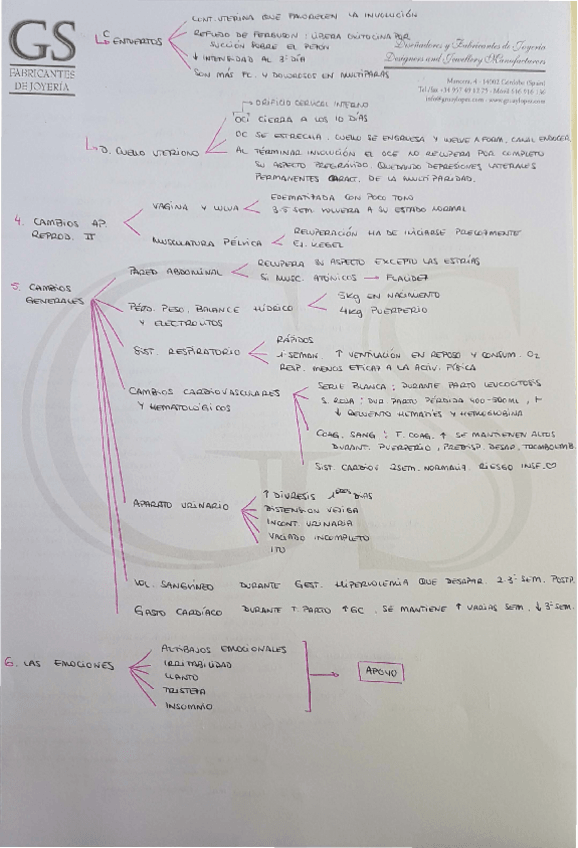 GS
FABRICANTES
DE JOYERÍA
Diseñadores y Fabricantes de Joyería
Designers and Jewellery Manufacturers
C ENTUERTOS
CONT. UTERINA QUE FAVORECEN LA INVOLUCIÓN
REFLEJO DE FERGUSON : LIBERA OXITOCINA POR
SUCCIÓN SOBRE EL PEZÓN
↓ INTENSIDAD AL 3º DÍA
SON MÁS FC. Y DOLOROSOS EN MULTÍPARAS
D. CUELLO UTERINO
→ ORIFICIO CERVICAL INTERNO
OCI CIERRA A LOS 10 DÍAS
OC SE ESTRECHA, CUELLO SE ENGRUESA Y VUELVE A FORM. CANAL ENDOCER.
AL TERMINAR INVOLUCIÓN EL OCE NO RECUPERA POR COMPLETO
SU ASPECTO PREGRAVIDO, QUEDANDO DEPRESIONES LATERALES
PERMANENTES CARACT. DE LA MULTIPARIDAD.
4. CAMBIOS AP.
REPROD. II
VAGINA Y VULVA
EDEMATIZADA CON POCO TONO
3-5 SEM. VOLVERÁ A SU ESTADO NORMAL
MUSCULATURA PÉLVICA
RECUPERACIÓN HA DE INICIARSE PRECOZMENTE
EJ. KEGEL
5. CAMBIOS
GENERALES
PARED ABDOMINAL
RECUPERA SU ASPECTO EXCEPTO LAS ESTRÍAS
SI MUSC. ATÓNICOS → FLACIDEZ
PÉRD. PESO, BALANCE HÍDRICO
Y ELECTROLITOS
5KG EN NACIMIENTO
4KG PUERPERIO
SIST. RESPIRATORIO
RÁPIDOS
1 SEMAN. ↑ VENTILACIÓN EN REPOSO Y CONSUM. O2
RESP. MENOS EFICAZ A LA ACTIV. FÍSICA
CAMBIOS CARDIOVASCULARES
Y HEMATOLÓGICOS
SERIE BLANCA : DURANTE PARTO LEUCOCITOSIS
S. ROJA : DUR. PARTO PÉRDIDA 400-500ML,
↓ RECUENTO HEMATÍES Y HEMOGLOBINA
COAG. SANG : T. COAG. ↑ SE MANTIENEN ALTOS
DURANT. PUERPERIO, PREDISP. DESAR. TROMBOEMB.
SIST. CARDIOV 2SEM. NORMALIZ. RIESGO INSF. ♡
APARATO URINARIO
↑ DIURESIS 1eros DÍAS
DISTENSIÓN VEJIGA
INCONT. URINARIA
VACIADO INCOMPLETO
ITU
VOL. SANGUÍNEO DURANTE GEST. HIPERVOLEMIA QUE DESAPAR. 2-3ª SEM. POSTP.
GASTO CARDÍACO DURANTE T. PARTO ↑GC. SE MANTIENE ↑ VARIAS SEM, ↓ 3ª SEM.
6. LAS EMOCIONES
ALTIBAJOS EMOCIONALES
IRRITABILIDAD
LLANTO
TRISTEZA
INSOMNIO
APOYO